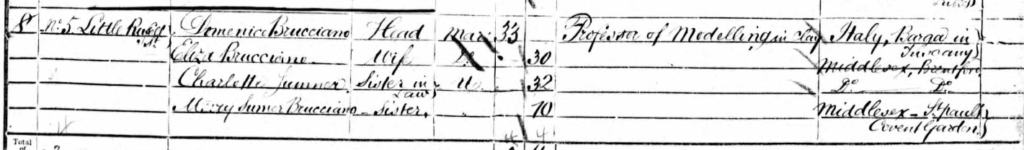 8 No. 5 Little Russell St. Domenico Brucciano Head Mar. 33 Professor of Modelling in Clay Italy, Barga in Tuscany
Eliza Brucciano Wife Do 30 Middlesex, Brentford
Charlotte Sumner Sister in Law U. 32 Do Do
Mary Sumer Brucciano Sister. 10 Middlesex - St. Paul
Covent Garden
Total
of